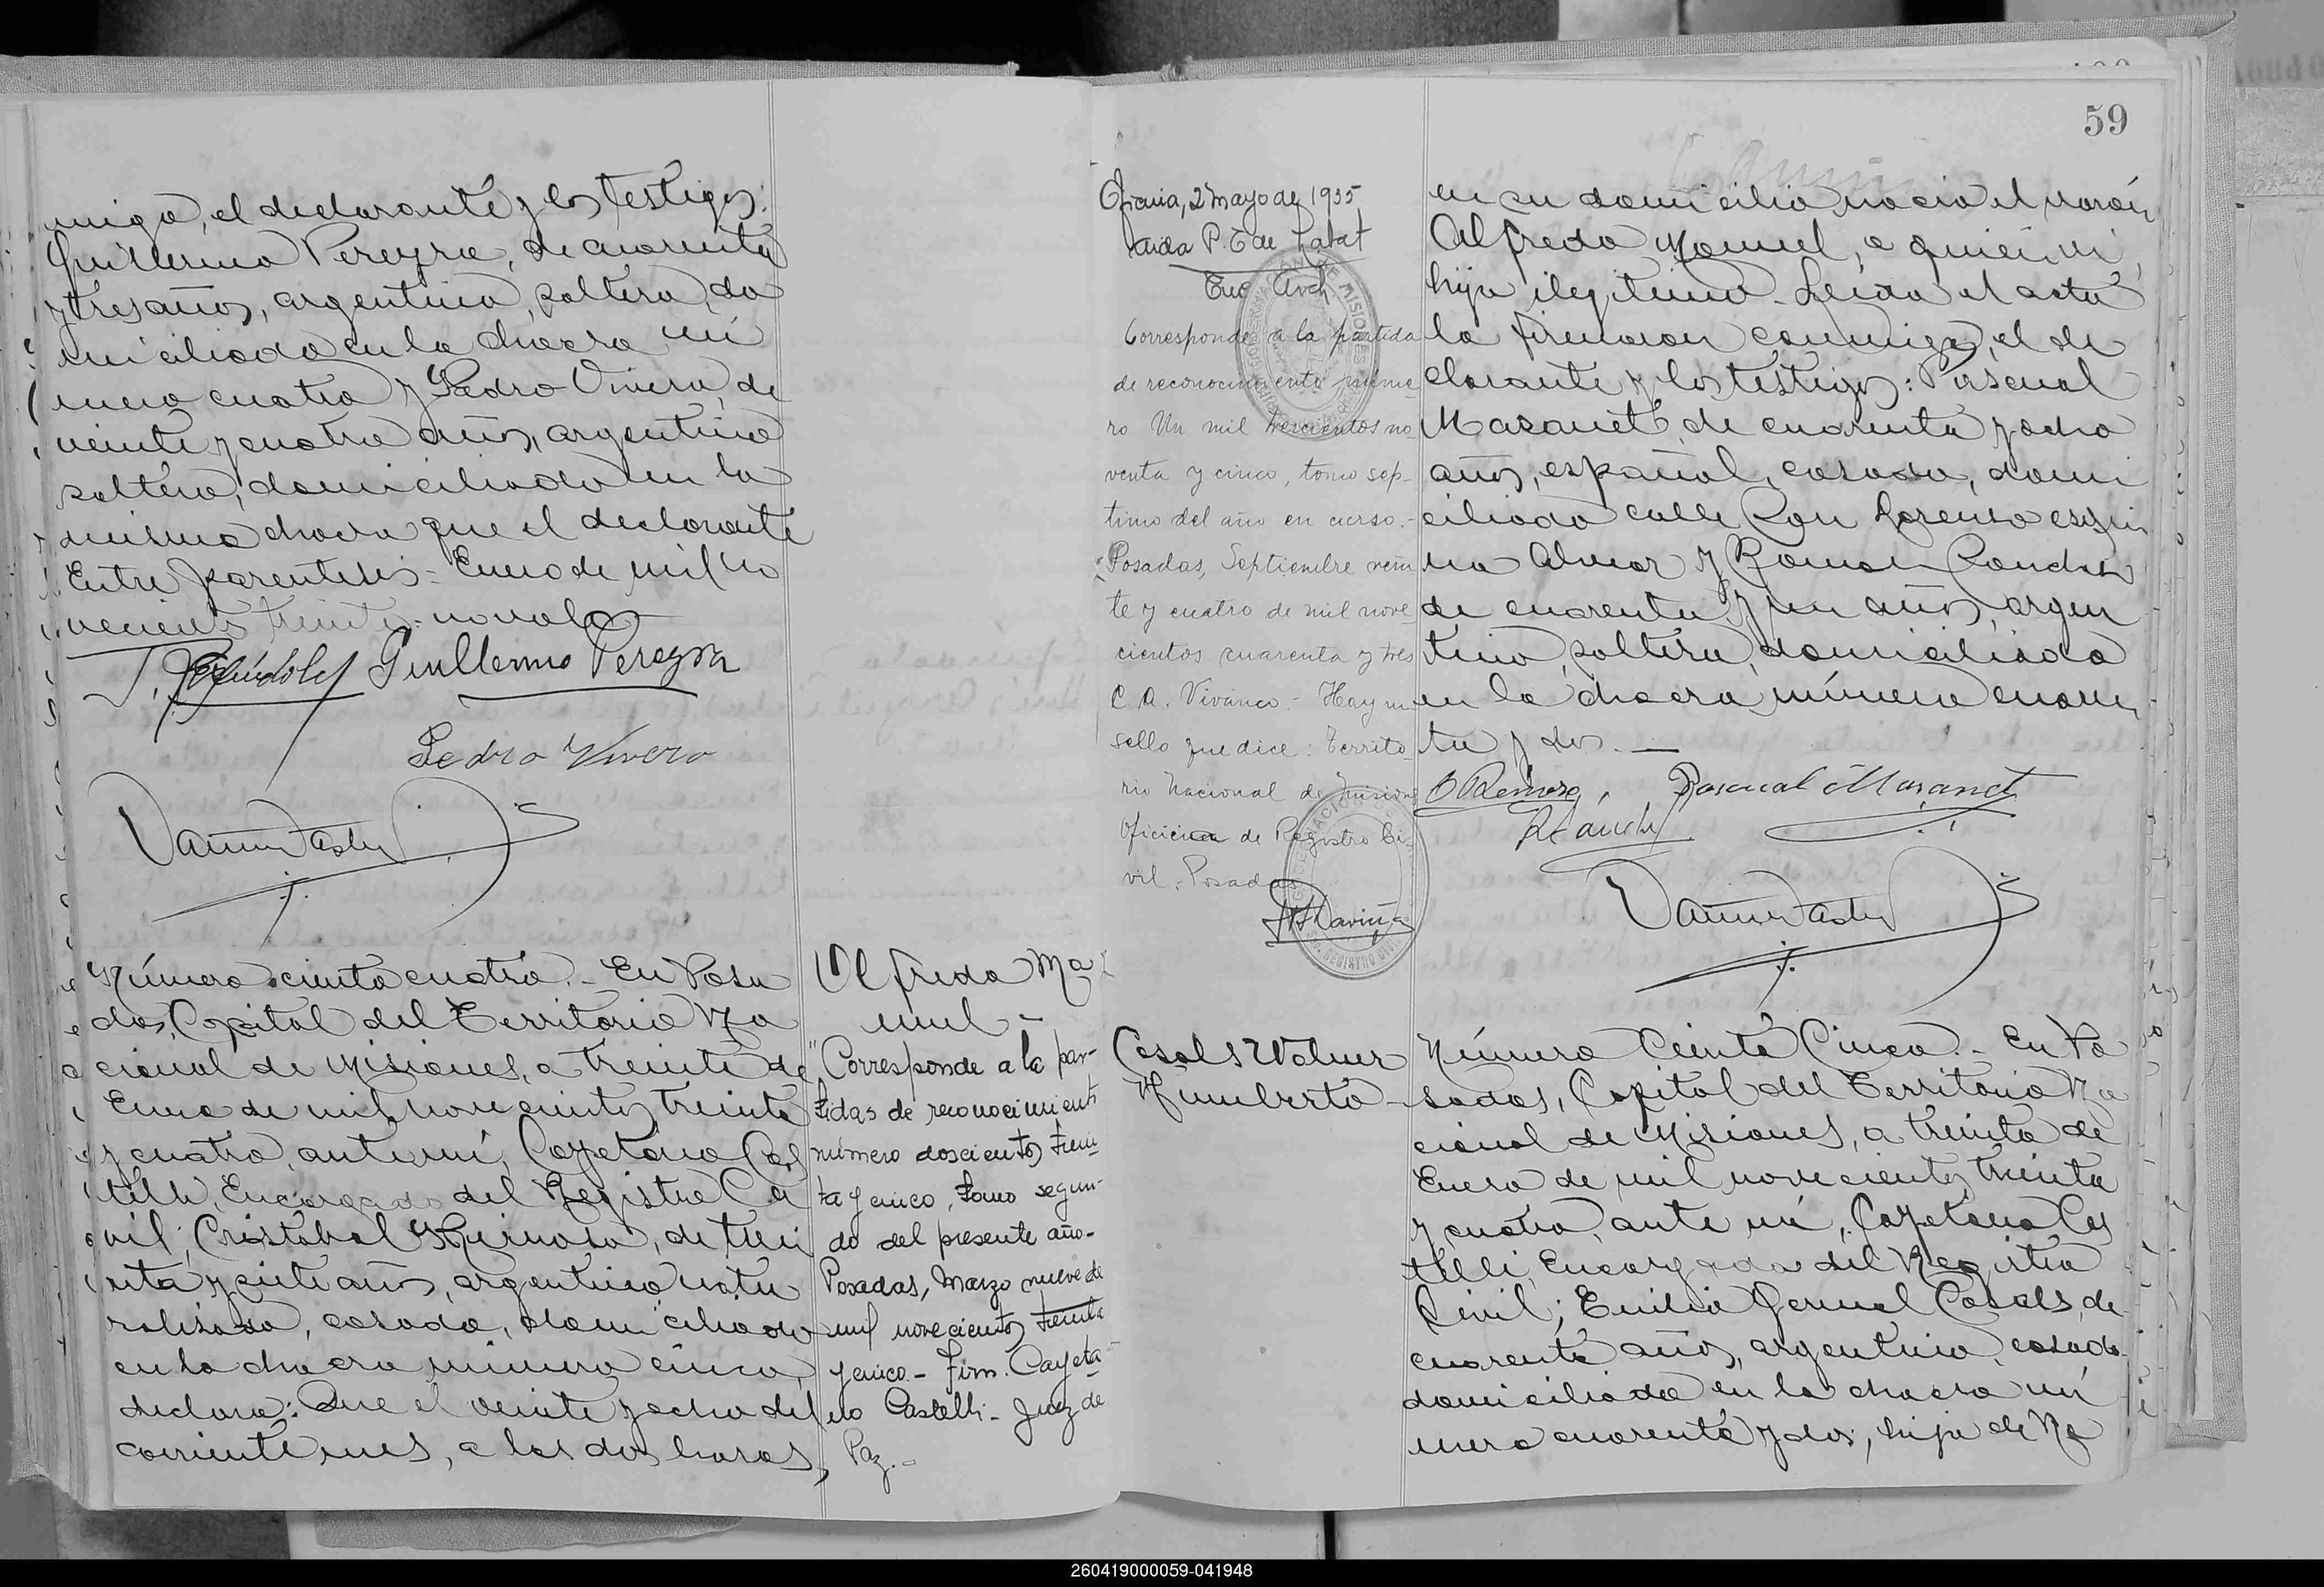 migo, el declarante y los testigos:
Guillermo Pereyra, de cuarenta
y tres años, argentino, soltero, do
miciliado en la chacra nú
mero cuatro y Pedro Vivero, de
veinte y cuatro años, argentino
soltero, domiciliado en la
misma chacra que el declarante
Entre parentesis = Enero de mil no
vecientos treinta = no vale
Guillermo Pereyra
Pedro Vivero
Número ciento cuatro.- En Posa
das, Capital del Territorio Na
cional de Misiones, a treinta de
Enero de mil novecientos treinta
y cuatro, ante mí, Cayetano Cas
telli, Encargado del Registro Ci
vil; Cristobal Reinoso, de trei
nta y siete años, argentino natu
ralizado, casado, domiciliado
en la chacra número cinco,
declara: Que el veinte y ocho del
corriente mes, a las dos horas,
Alfredo Ma
nuel -
"Corresponde a la par-
tidas de reconocimiento
número doscientos trein
ta y cinco, tomo segun-
do del presente año-
Posadas, Marzo nueve de
mil novecientos treinta
y cinco.- Firm. Cayeta
no Castelli- Juez de
Paz.-
59
2 Mayo de 1935
Aida P. de
Corresponde a la partida
de reconocimiento núme-
ro Un mil trescientos no-
venta y cinco, tomo sép-
timo del año en curso.-
Posadas, Septiembre vein
te y cuatro de mil nove
cientos cuarenta y tres
C. A. Vivanco.- Hay un
sello que dice: Territo
rio Nacional de Misiones
Oficina de Registro Ci-
vil. Posadas
en su domicilio nació el varón
Alfredo Manuel, a quien vi,
hijo ilegitimo. Leída el acta
la firmaron conmigo, el de
clarante y los testigos: Pascual
Masanet, de cuarenta y ocho
años, español, casado, domi
ciliado calle San Lorenzo esqui
na Alvear y Roman Sanchez
de cuarenta y un años, argen
tino, soltero, domiciliado
en la chacra número cuaren
ta y dos.-
Pascual Masanet
Casals Walner
Humberto -
Número Ciento Cinco.- En Po
sadas, Capital del Territorio Na
cional de Misiones, a treinta de
Enero de mil novecientos treinta
y cuatro, ante mí, Cayetano Cas
telli, Encargado del Registro
Civil; Emilio Casals, de
cuarenta años, argentino, casado
domiciliado en la chacra nú
mero cuarenta y dos, hijo de
260419000059-041948